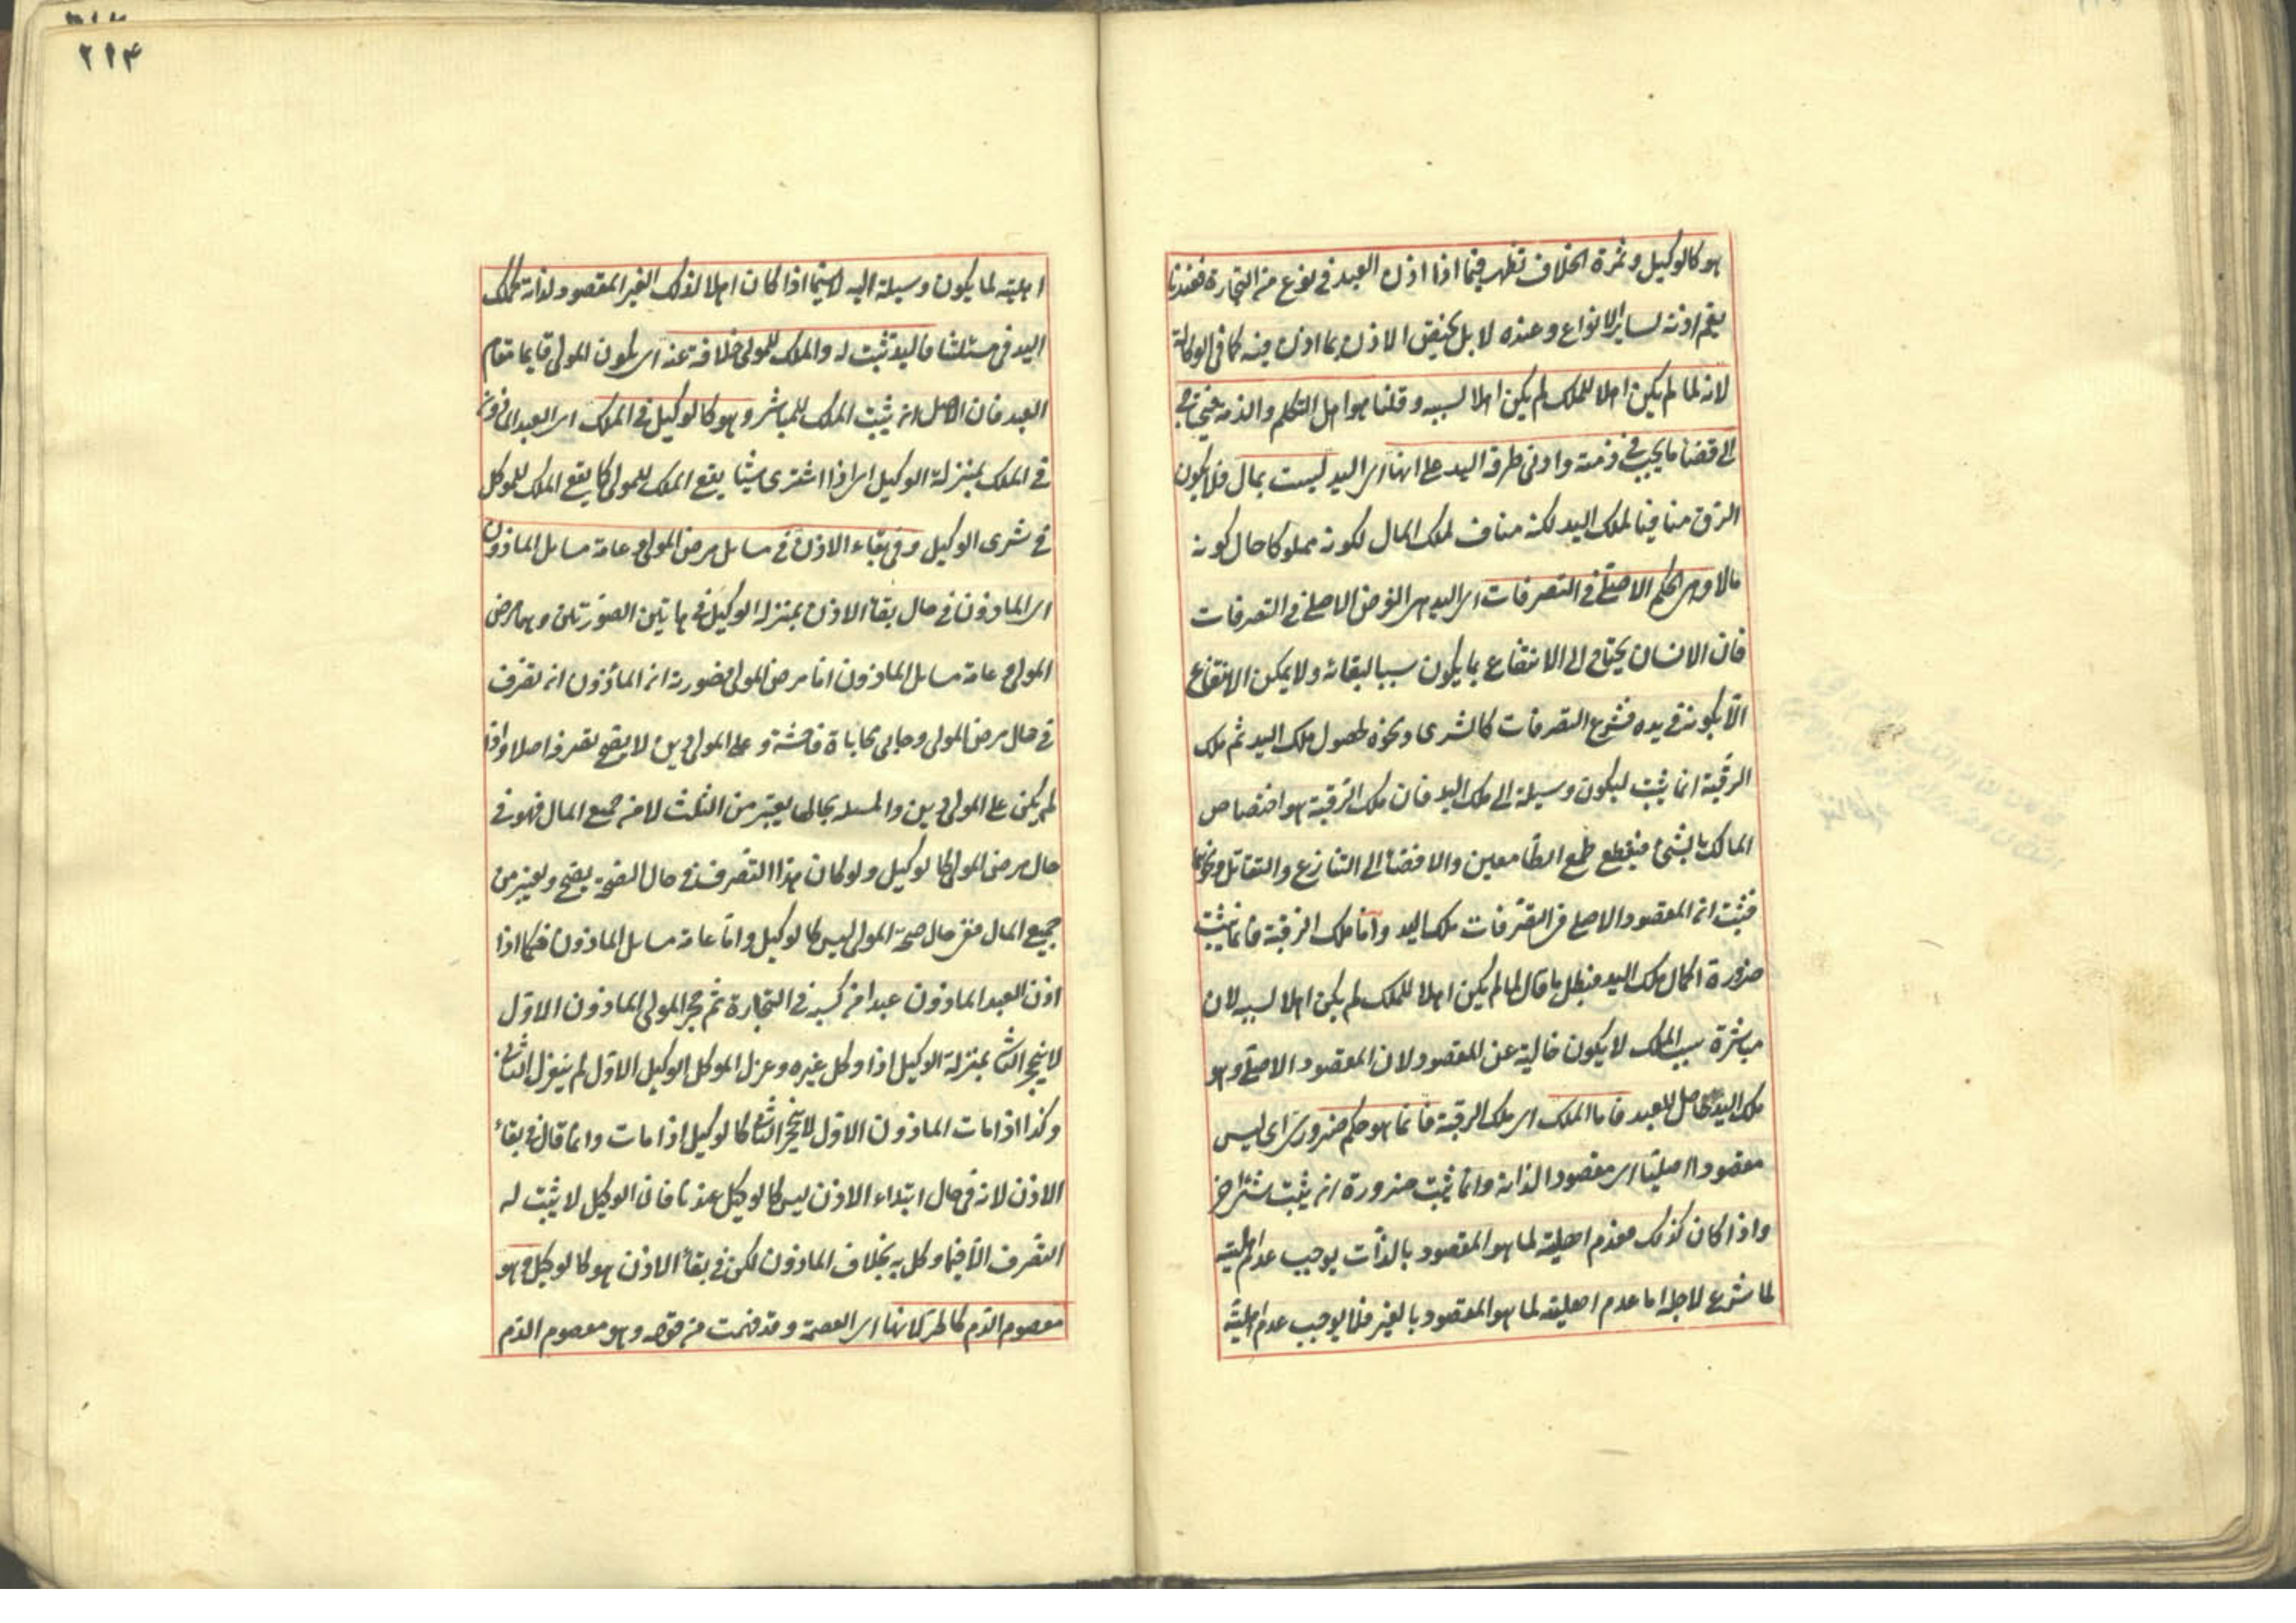 هو كالوكيل وثمرة الخلاف تظهر فيما اذا اذن العبد في نوع من التجارة فعندنا
يعم اذنه لساير الانواع وعنده لا بل يختص الاذن بما اذن فيه كما في الوكالة
لانه لما لم يكن اهلا للملك لم يكن اهلا لسببه وقلنا هو اهل التكلم والذمة فيحتاج
الى قضا ما يجب في ذمته وادنى طرقه اليد على انها اى اليد ليست بمال فلا يكون
الرق منافيا لملك اليد لكنه مناف لملك المال لكونه مملوكا حال كونه
مالا وهى الحكم الاصلى في التصرفات اى اليد هى الغرض الاصلى في التصرفات
فان الانسان يحتاج الى الانتفاع بما يكون سببا لبقائه ولا يمكن الانتفاع
الا بكونه في يده فشرع التصرفات كالشرى ونحوه لحصول ملك اليد ثم ملك
الرقبة انما يثبت ليكون وسيلة الى ملك اليد فان ملك الرقبة هو اختصاص
المالك بالشئ فيقطع طمع الطامعين والافضا الى التنازع والتقاتل ونحوها
فثبت ان المقصود الاصلى من التصرفات ملك اليد واما ملك الرقبة فانما يثبت
ضرورة اكمال ملك اليد فبطل ما قال لما لم يكن اهلا للملك لم يكن اهلا لسببه لان
مباشرة سبب الملك لا يكون خالية عن المقصود لان المقصود الاصلى وهو
ملك اليد حاصل للعبد فاما الملك اى ملك الرقبة فانما هو حكم ضرورى اى ليس
مقصودا اصليا اى مقصودا لذاته وانما يثبت ضرورة ان يثبت شئ اخر
واذا كان كذلك فعدم اهليته لما هو المقصود بالذات يوجب عدم اهليته
لما شرع لاجله اما عدم اهليته لما هو المقصود بالغير فلا يوجب عدم اهلية
٢١٤
اهليته لما يكون وسيلة اليه لاسيما اذا كان اهلا لذلك الغير المقصود لذاته كملك
اليد في مسئلتنا فاليد تثبت له والملك للمولى خلافة عنه اى يكون المولى قايما مقام
العبد فان الاصل ان يثبت الملك للمباشر وهو كالوكيل في الملك اى العبد الماذون
في الملك بمنزلة الوكيل اى اذا اشترى شيئا يقع الملك للمولى كما يقع الملك للموكل
في شرى الوكيل وفي بقاء الاذن في مسايل مرض المولى وعامة مسايل الماذون
اى الماذون في حال بقأ الاذن بمنزلة الوكيل في هاتين الصورتين وهما مرض
المولى وعامة مسايل الماذون اما مرض المولى فصورته ان الماذون ان تصرف
في حال مرض المولى وحابى محاباة فاحشة وعلى المولى دين لا يصح تصرفه اصلا واذا
لم يكن على المولى دين والمسئلة بحالها يعتبر من الثلث لا من جميع المال فهو في
حال مرض المولى كالوكيل ولو كان هذا التصرف في حال الصحة يصح ويعتبر من
جميع المال ففى حال صحة المولى ليس كالوكيل واما عامة مسايل الماذون فكما اذا
اذن العبد الماذون عبدا من كسبه في التجارة ثم حجر المولى الماذون الاول
لا ينحجر الثانى بمنزلة الوكيل اذا وكل غيره وعزل الموكل الوكيل الاول لم ينعزل الثانى
وكذا اذا مات الماذون الاول لا ينحجر الثانى كالوكيل اذا مات وانما قال في بقأ
الاذن لانه في حال ابتداء الاذن ليس كالوكيل عندنا فان الوكيل لا يثبت له
التصرف الا فيما وكل به بخلاف الماذون لكن في بقأ الاذن هو كالوكيل وهو
معصوم الدم كالحر لانها اى العصمة وقد فهمت من قوله وهو معصوم الدم